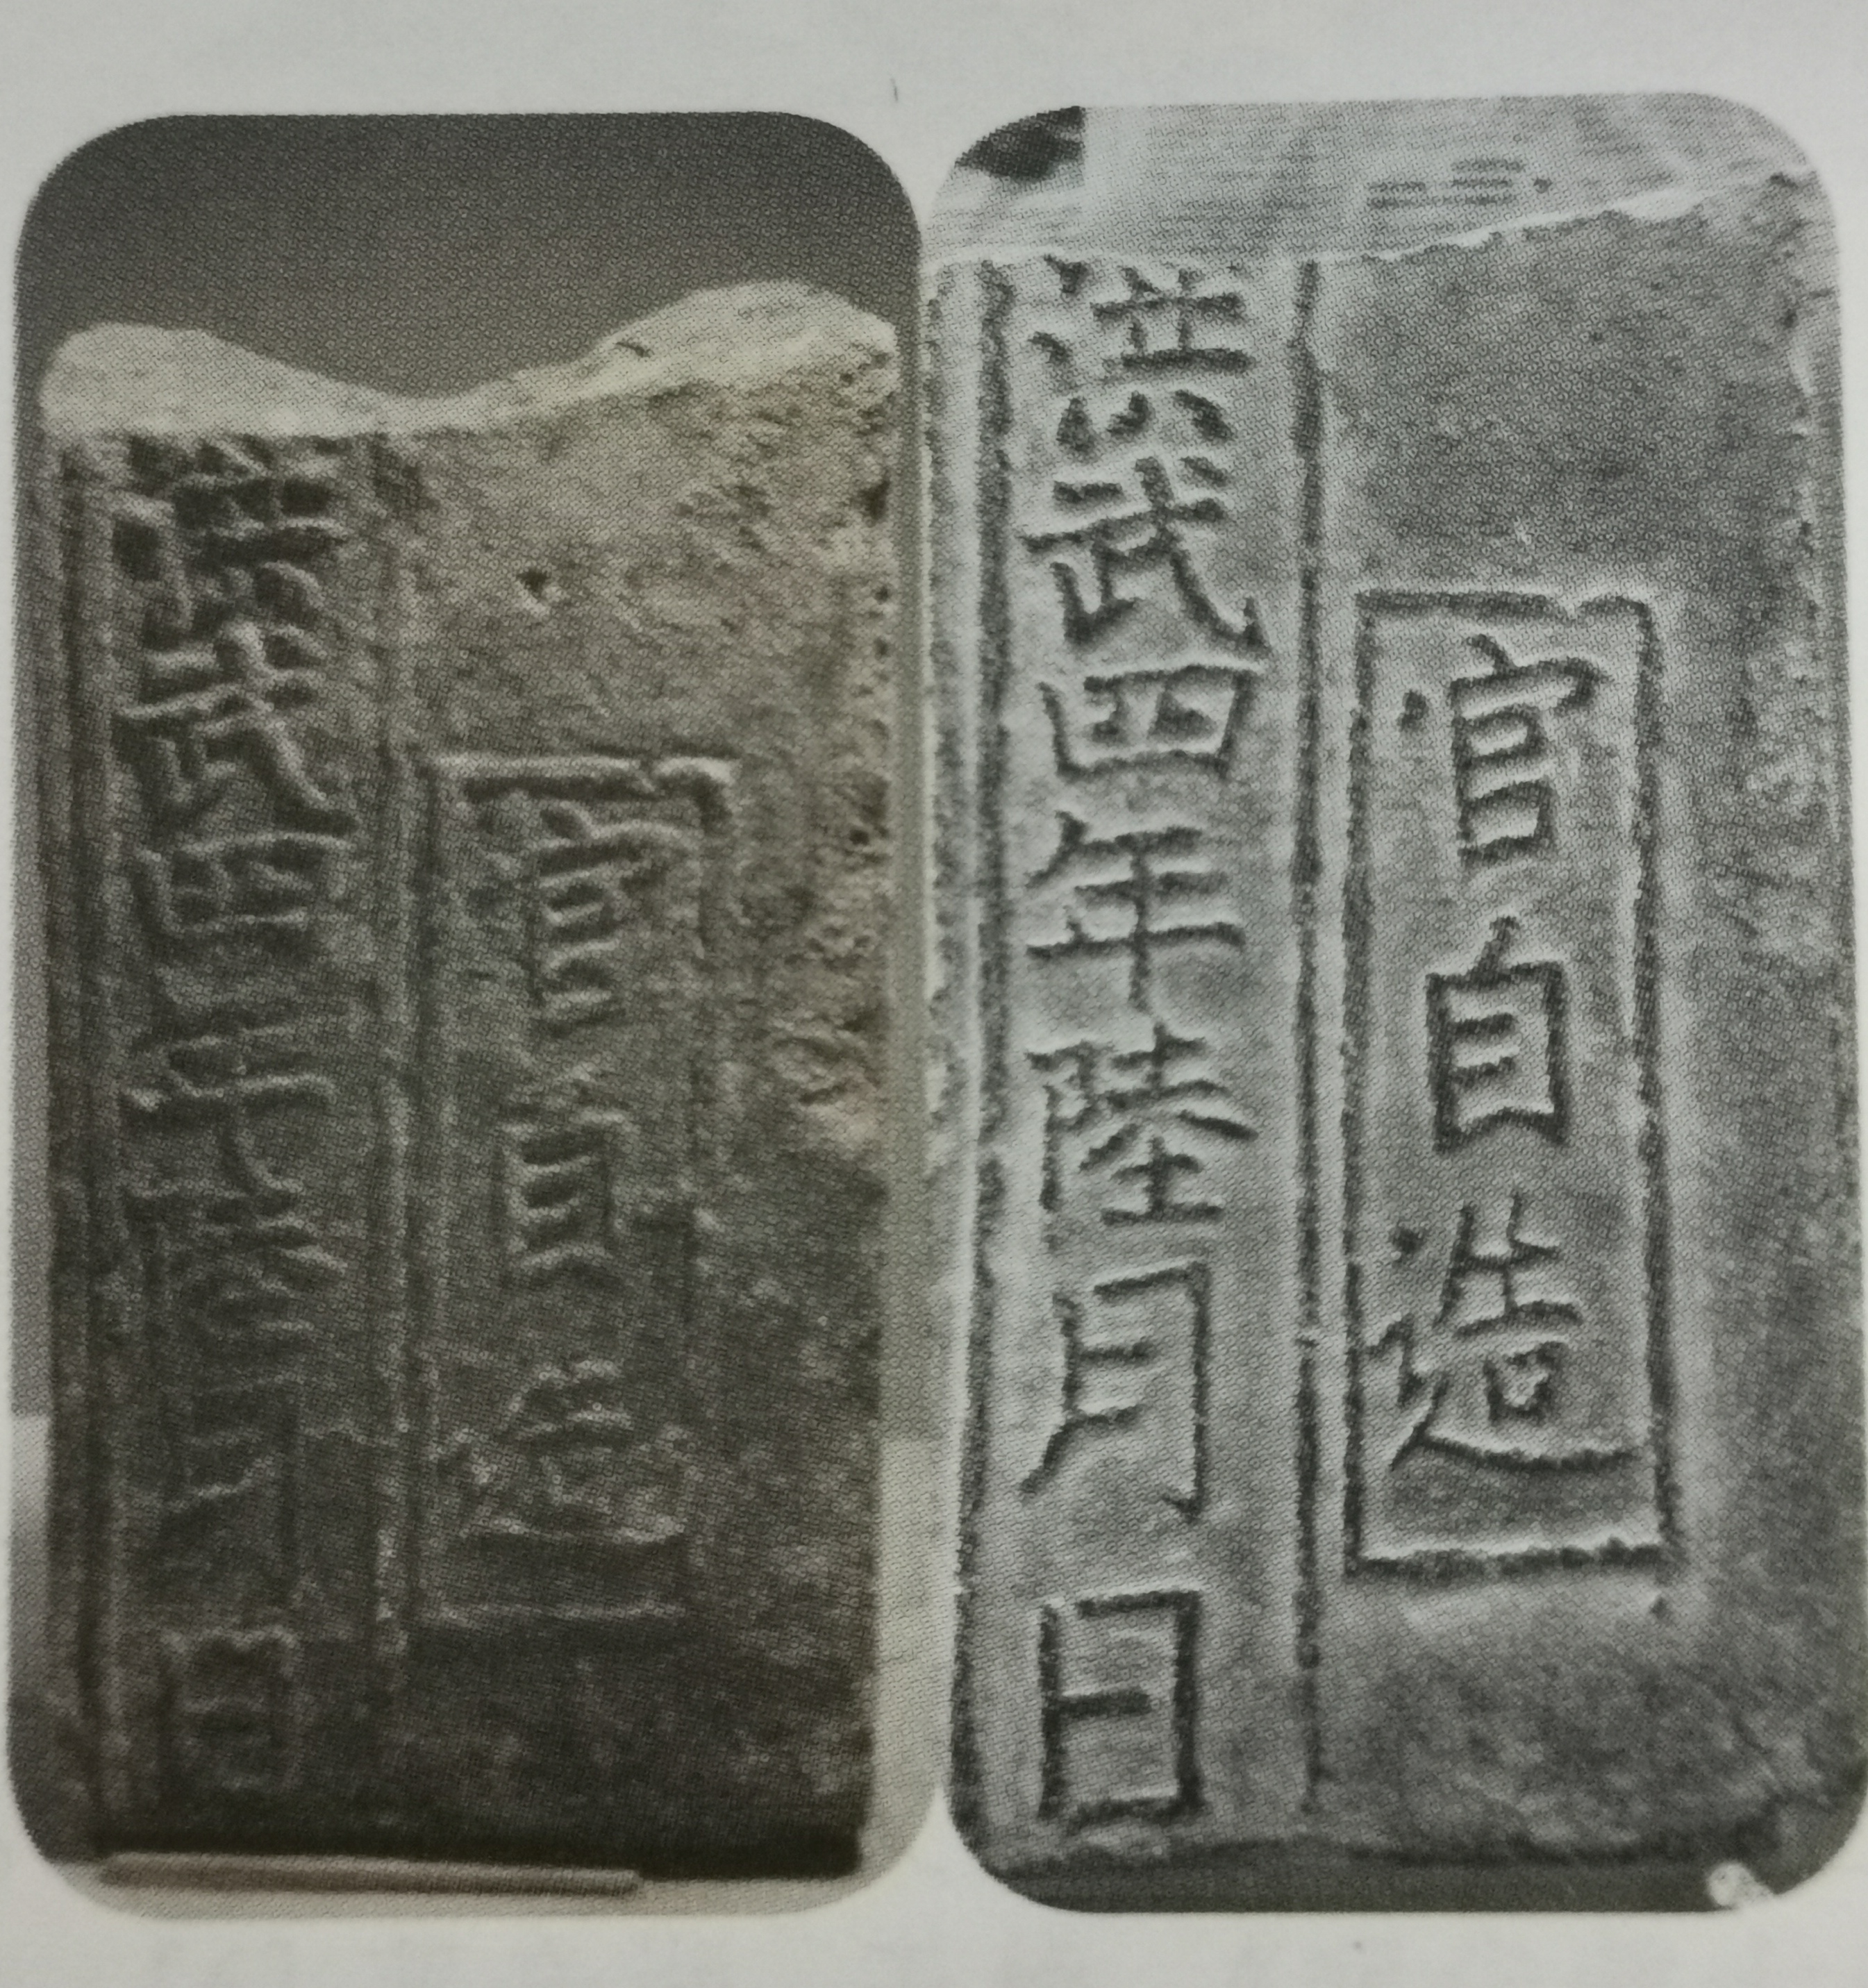 官自造
洪武四年陸月日
官自造
洪武四年陸月日